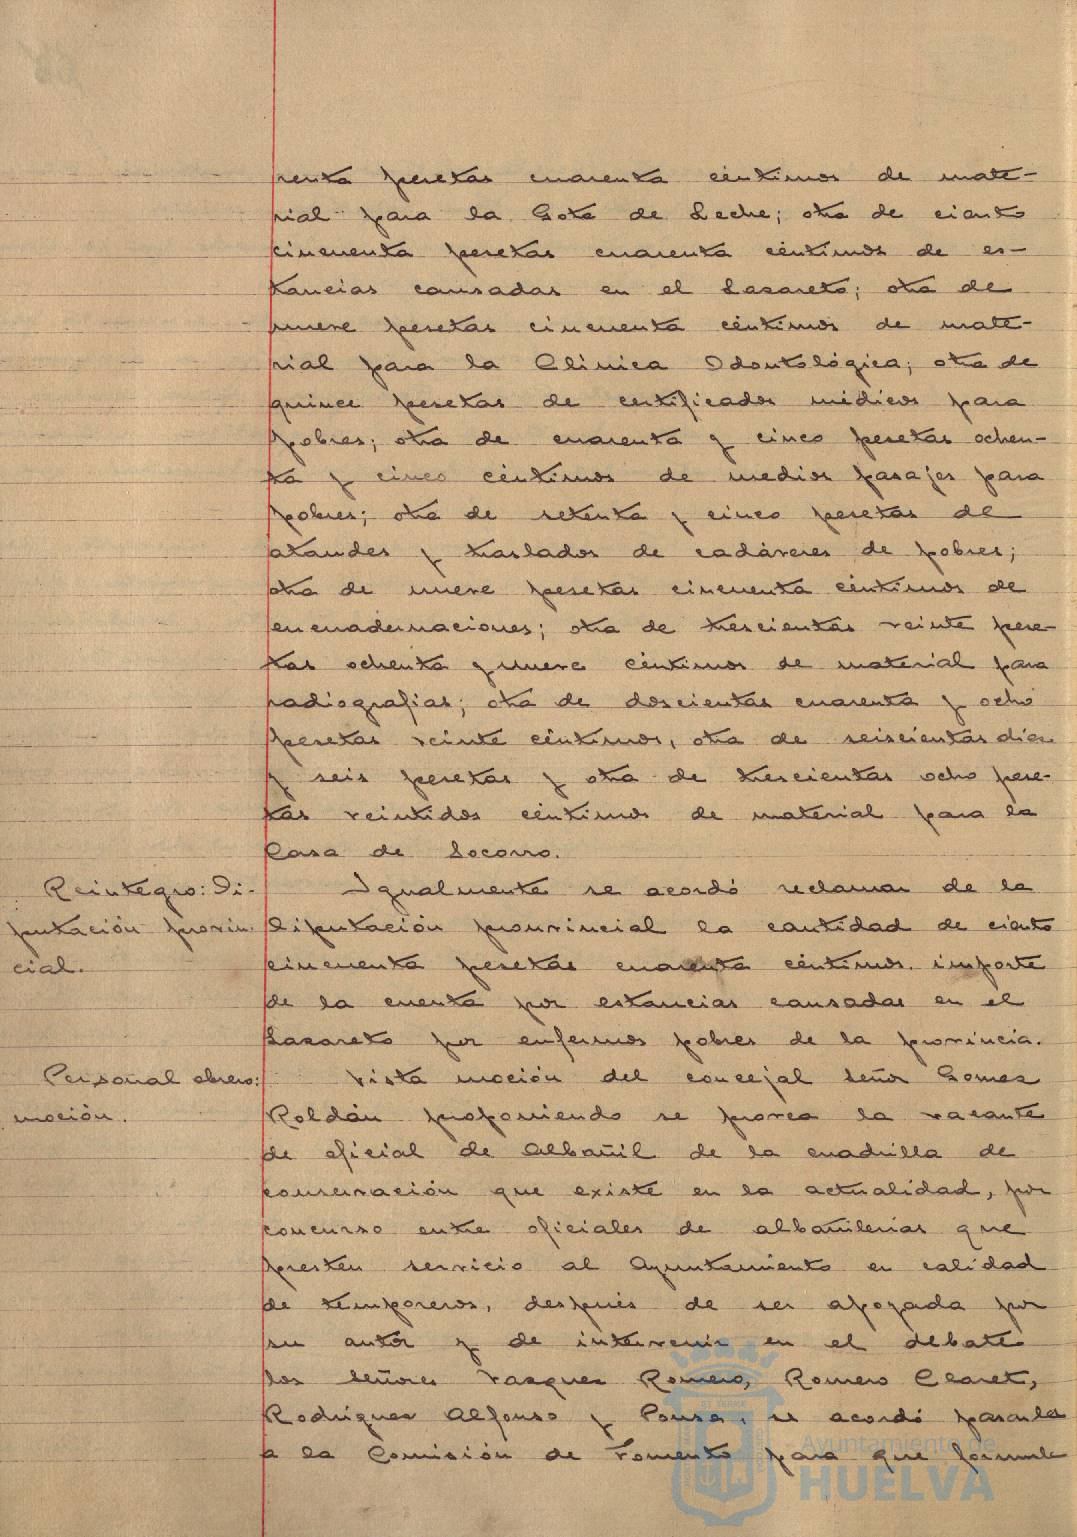 renta pesetas cuarenta céntimos de mate-
rial para la Gota de Leche; otra de ciento
cincuenta pesetas cuarenta céntimos de es-
tancias causadas en el Lazareto; otra de
nueve pesetas cincuenta céntimos de mate-
rial para la Clínica Odontológica; otra de
quince pesetas de certificados médicos para
pobres; otra de cuarenta y cinco pesetas ochen-
ta y cinco céntimos de medios pasajes para
pobres; otra de setenta y cinco pesetas de
ataudes y traslados de cadáveres de pobres;
otra de nueve pesetas cincuenta céntimos de
encuadernaciones; otra de trescientas veinte pese-
tas ochenta y nueve céntimos de material para
radiografias; otra de doscientas cuarenta y ocho
pesetas veinte céntimos, otra de seiscientas diez
y seis pesetas y otra de trescientas ocho pese-
tas veintidos céntimos de material para la
Casa de Socorro.
Reintegro: Di-
putación provin-
cial.
Igualmente se acordó reclamar de la
Diputación prouvincial la cantidad de ciento
cincuenta pesetas cuarenta céntimos. importe
de la cuenta por estancias causadas en el
Lazareto por enfermos pobres de la provincia.
Personal obrero:
moción.
Vista moción del concejal señor Gomez
Roldán proponiendo se provea la vacante
de oficial de Albañil de la cuadrilla de
conservación que existe en la actualidad, por
concurso entre oficiales de albañilerias que
presten servicio al Ayuntamiento en calidad
de temporeros, después de ser apoyada por
su autor y de intervenir en el debate
los señores Vazquez Romero, Romero Claret,
Rodriguez Alfonso y Pousa, se acordó pasarla
a la Comisión de Fomento para que formule
Ayuntamiento de
HUELVA